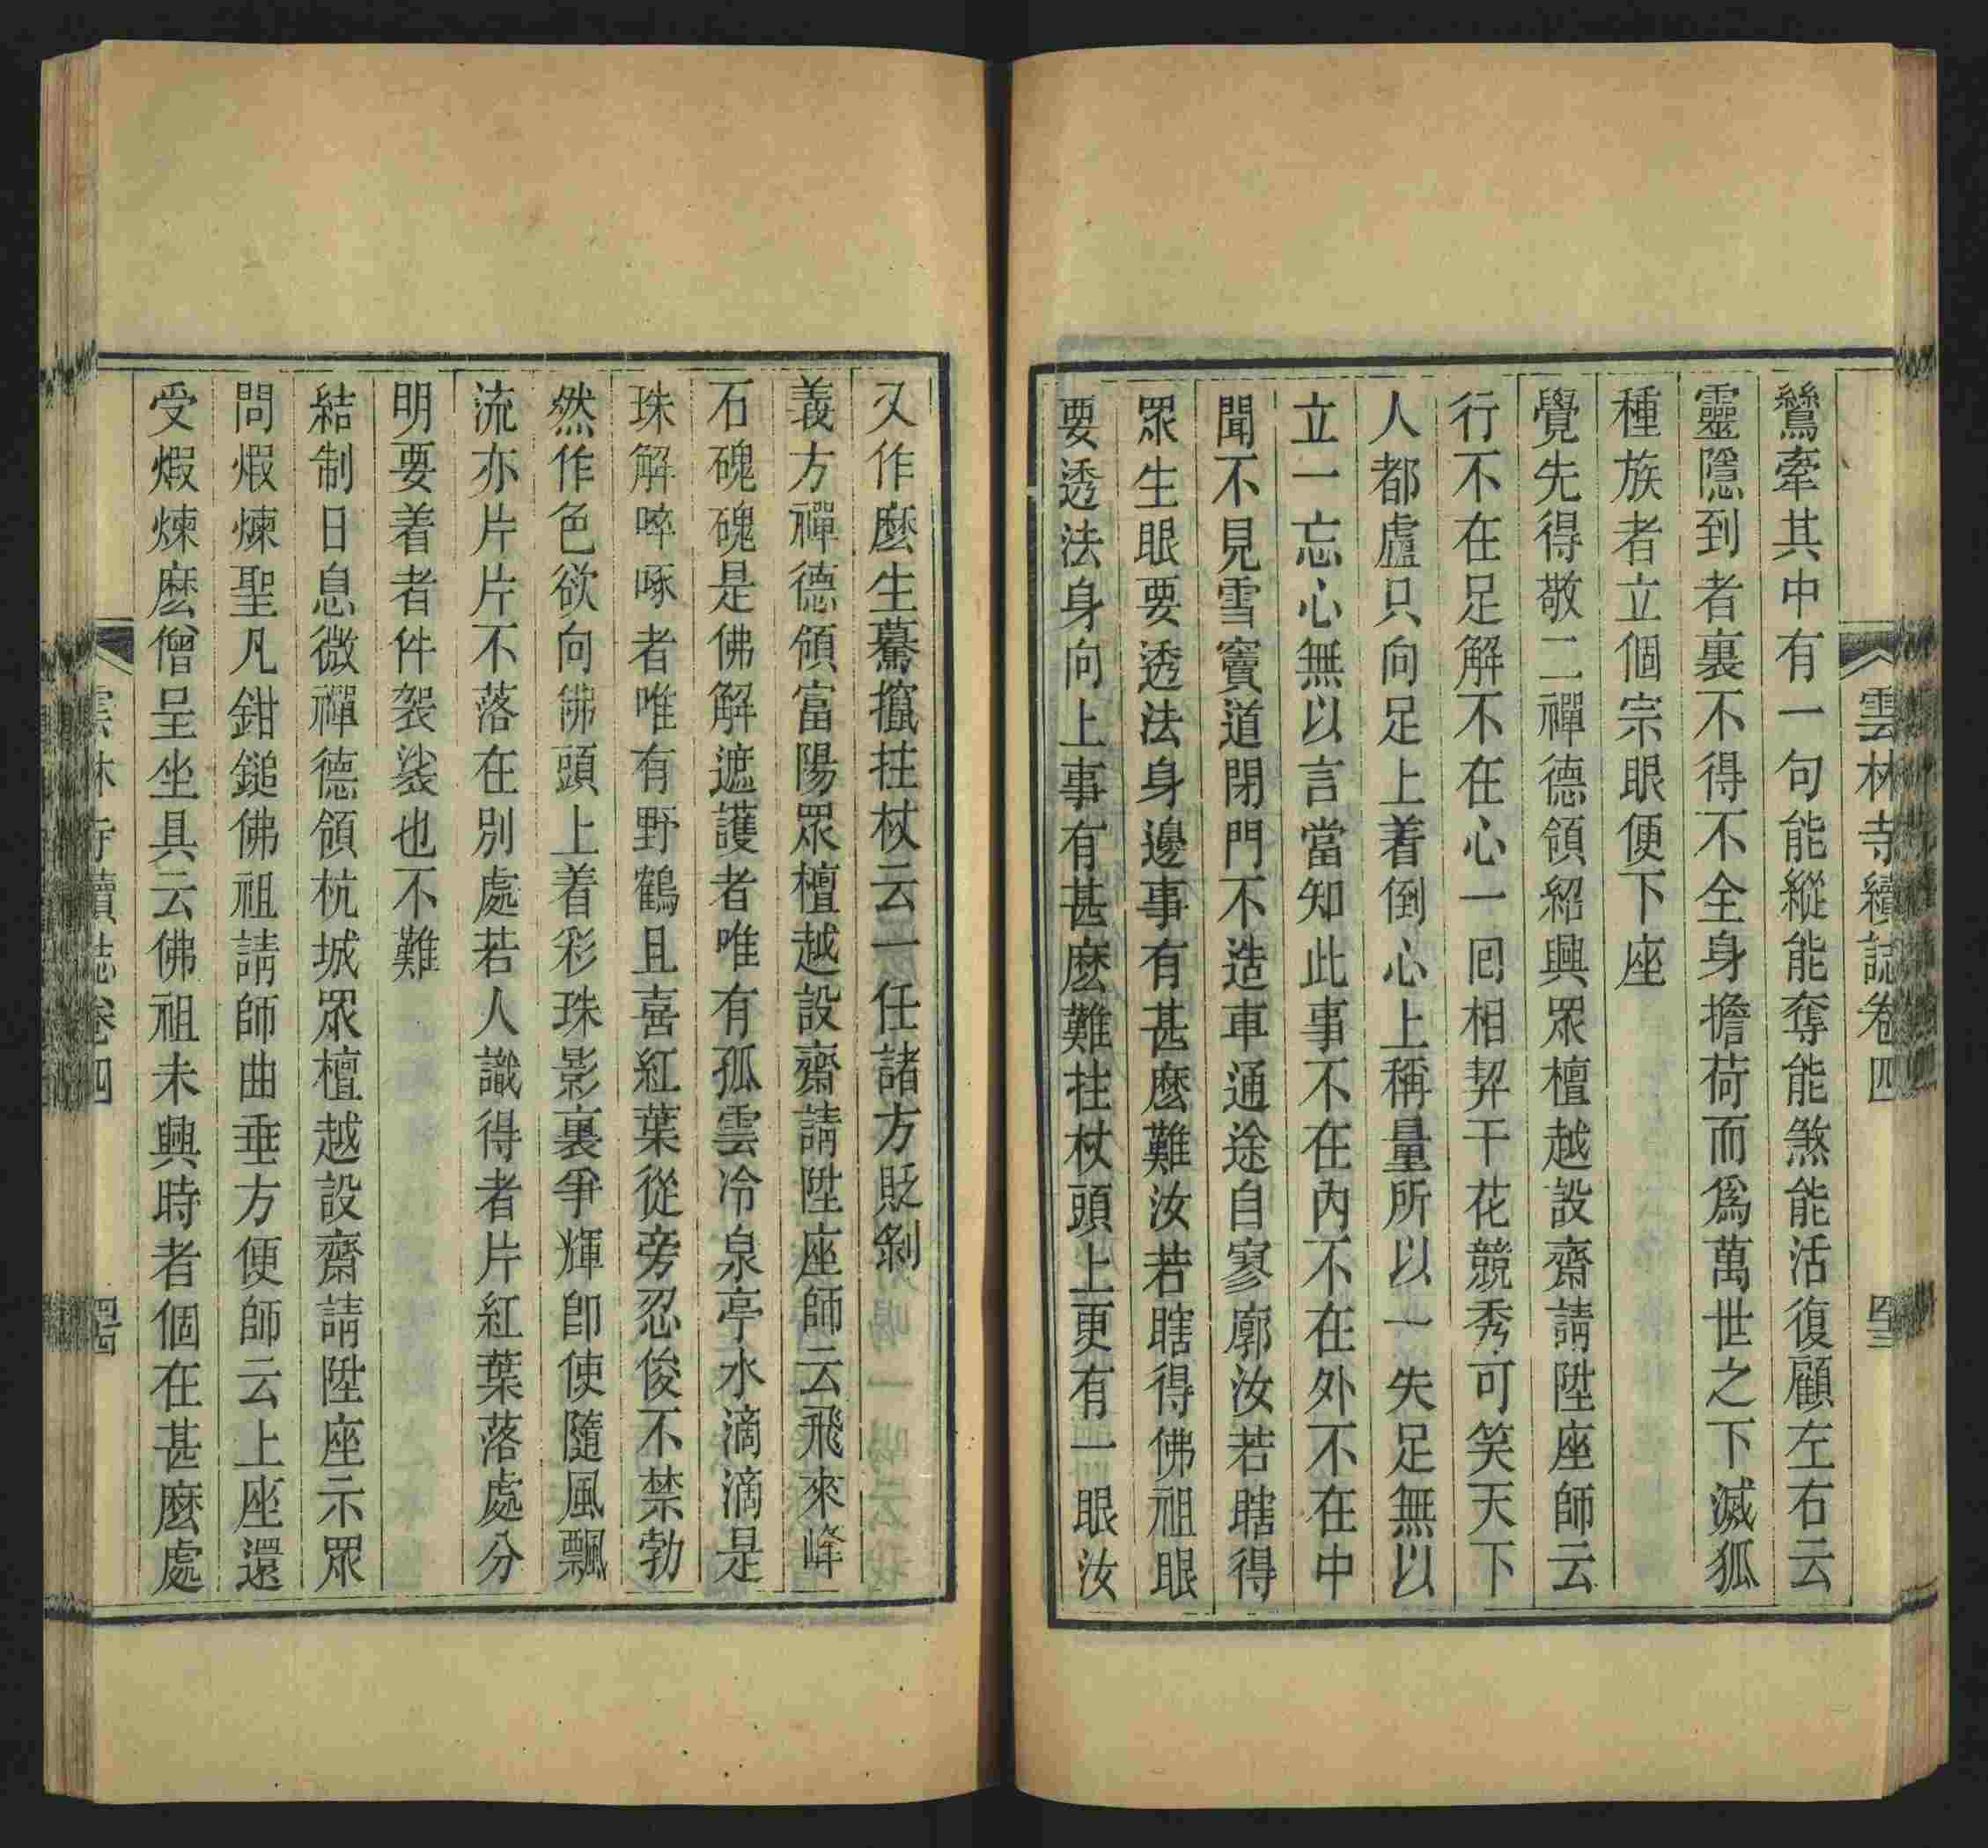 雲林寺續誌卷四
鷲牽其中有一句能縱能奪能煞能活復顧左右云
靈隱到者裏不得不全身擔荷而爲萬世之下滅狐
種族者立個宗眼便下座
覺先得敬二禪德領紹興眾檀越設齋請陞座師云
行不在足解不在心一囘相契千花競秀可笑天下
人都盧只向足上着倒心上稱量所以一失足無以
立一忘心無以言當知此事不在內不在外不在中
聞不見雪竇道閉門不造車通途自寥廓汝若瞎得
眾生眼要透法身邊事有甚麽難汝若瞎得佛祖眼
要透法身向上事有甚麽難拄杖頭上更有一眼汝
又作麽生驀攛拄杖云一任諸方貶剝
義方禪德領富陽眾檀越設齋請陞座師云飛來峰
石磈磈是佛解遮護者唯有孤雲冷泉亭水滴滴是
珠解啐啄者唯有野鶴且喜紅葉從旁忍俊不禁勃
然作色欲向佛頭上着彩珠影裏爭輝卽使隨風飄
流亦片片不落在別處若人識得者片紅葉落處分
明要着者件袈裟也不難
結制日息微禪德領杭城眾檀越設齋請陞座示眾
問煆煉聖凡鉗鎚佛祖請師曲垂方便師云上座還
受煆煉麽僧呈坐具云佛祖未興時者個在甚麽處
雲林寺續誌卷四